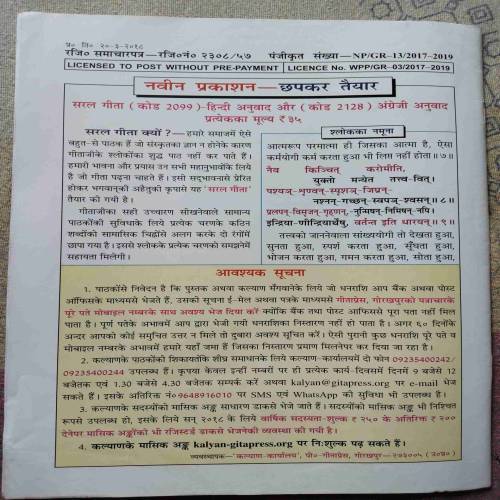 प्र० ति० २०-३-२०१८
रजि० समाचारपत्र—रजि०नं० २३०८/५७ पंजीकृत संख्या—NP/GR-13/2017-2019
LICENSED TO POST WITHOUT PRE-PAYMENT | LICENCE No. WPP/GR-03/2017-2019
नवीन प्रकाशन—छपकर तैयार
सरल गीता (कोड 2099)-हिन्दी अनुवाद और (कोड 2128) अंग्रेजी अनुवाद
प्रत्येकका मूल्य ₹ ३५
सरल गीता क्यों ?—हमारे समाजमें ऐसे
बहुत-से पाठक हैं जो संस्कृतका ज्ञान न होनेके कारण
गीताजीके श्लोकोंका शुद्ध पाठ नहीं कर पाते हैं।
हमारी भावना और प्रयास उन सभी महानुभावोंके लिये
है जो गीता पढ़ना चाहते हैं। इसी सद्भावनासे प्रेरित
होकर भगवान्‌की अहैतुकी कृपासे यह 'सरल गीता'
तैयार की गयी है।
गीताजीका सही उच्चारण सीखनेवाले सामान्य
पाठकोंकी सुविधाके लिये प्रत्येक चरणके कठिन
शब्दोंको सामासिक चिह्नोंसे अलग करके दो रंगोंमें
छापा गया है। इससे श्लोकके प्रत्येक चरणको समझनेमें
सहायता मिलेगी।
श्लोकका नमूना
आत्मरूप परमात्मा ही जिसका आत्मा है, ऐसा
कर्मयोगी कर्म करता हुआ भी लिप्त नहीं होता॥७॥
नैव किञ्चित् करोमीति,
युक्तो मन्येत तत्त्व-वित्।
पश्यञ्-शृण्वन्-स्पृशञ्-जिघ्रन्-
नश्नन्-गच्छन् स्वपञ्-श्वसन्॥८॥
प्रलपन्-विसृजन्-गृह्णन्, नुन्मिषन्-निमिषन्-नपि।
इन्द्रिया-णीन्द्रियार्थेषु, वर्तन्त इति धारयन्॥९॥
तत्त्वको जाननेवाला सांख्ययोगी तो देखता हुआ,
सुनता हुआ, स्पर्श करता हुआ, सूँघता हुआ,
भोजन करता हुआ, गमन करता हुआ, सोता हुआ,
आवश्यक सूचना
1. पाठकोंसे निवेदन है कि पुस्तक अथवा कल्याण मँगवानेके लिये जो धनराशि आप बैंक अथवा पोस्ट
ऑफिसके माध्यमसे भेजते हैं, उसकी सूचना ई-मेल अथवा पत्रके माध्यमसे गीताप्रेस, गोरखपुरको पत्राचारके
पूरे पते मोबाइल नम्बरके साथ अवश्य भेज दिया करें क्योंकि बैंक तथा पोस्ट आफिससे पूरा पता नहीं मिल
पाता है। पूर्ण पतेके अभावमें आप द्वारा भेजी गयी धनराशिका निस्तारण नहीं हो पाता है। अगर ६० दिनोंके
अन्दर आपको कोई समुचित उत्तर न मिले तो दुबारा अवश्य सूचित करें। ऐसी पुरानी कुछ धनराशि पूरे पते व
मोबाइल नम्बरके अभावमें हमारे यहाँ जमा हैं जिसका निस्तारण प्रमाण मिलनेपर कर दिया जा रहा है।
2. कल्याणके पाठकोंकी शिकायतोंके शीघ्र समाधानके लिये कल्याण-कार्यालयमें दो फोन 09235400242/
09235400244 उपलब्ध हैं। कृपया केवल इन्हीं नम्बरों पर ही प्रत्येक कार्य-दिवसमें दिनमें 9 बजेसे 12
बजेतक एवं 1.30 बजेसे 4.30 बजेतक सम्पर्क करें अथवा kalyan@gitapress.org पर e-mail भेज
सकते हैं। इसके अतिरिक्त नं०9648916010 पर SMS एवं WhatsApp की सुविधा भी उपलब्ध है।
3. कल्याणके सदस्योंको मासिक अङ्क साधारण डाकसे भेजे जाते हैं। सदस्योंको मासिक अङ्क भी निश्चित
रूपसे उपलब्ध हो, इसके लिये सन् २०१८ के लिये वार्षिक सदस्यता-शुल्क ₹ २५० के अतिरिक्त ₹ २००
देनेपर मासिक अङ्कोंको भी रजिस्टर्ड डाकसे भेजनेकी व्यवस्था की गयी है।
4. कल्याणके मासिक अङ्क kalyan-gitapress.org पर निःशुल्क पढ़ सकते हैं।
व्यवस्थापक—'कल्याण-कार्यालय', पो०-गीताप्रेस, गोरखपुर—२७३००५ (उ०प्र०)